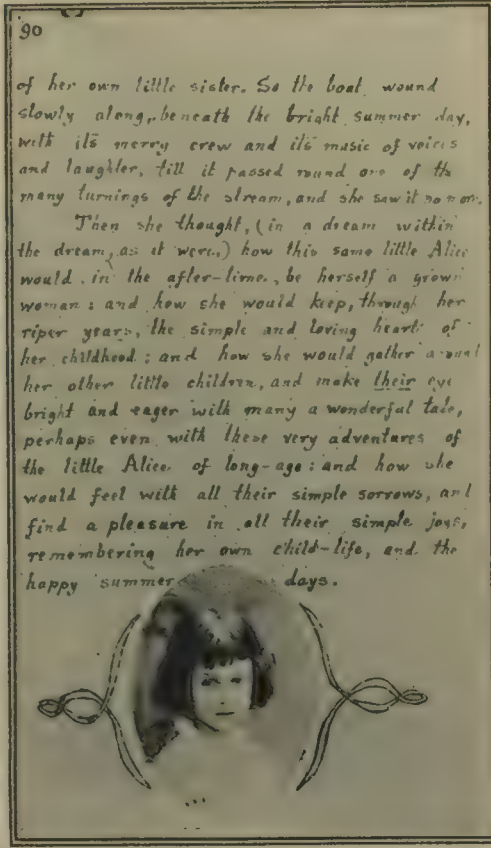 90
of her own little sister. So the boat wound
slowly along, beneath the bright summer day,
with its merry crew and its music of voices
and laughter, till it passed round one of the
many turnings of the stream, and she saw it no more.
Then she thought, (in a dream within
the dream, as it were,) how this same little Alice
would, in the after-time, be herself a grown
woman: and how she would keep, through her
riper years, the simple and loving heart of
her childhood: and how she would gather around
her other little children, and make their eyes
bright and eager with many a wonderful tale,
perhaps even with these very adventures of
the little Alice of long-ago: and how she
would feel with all their simple sorrows, and
find a pleasure in all their simple joys,
remembering her own child-life, and the
happy summer days.